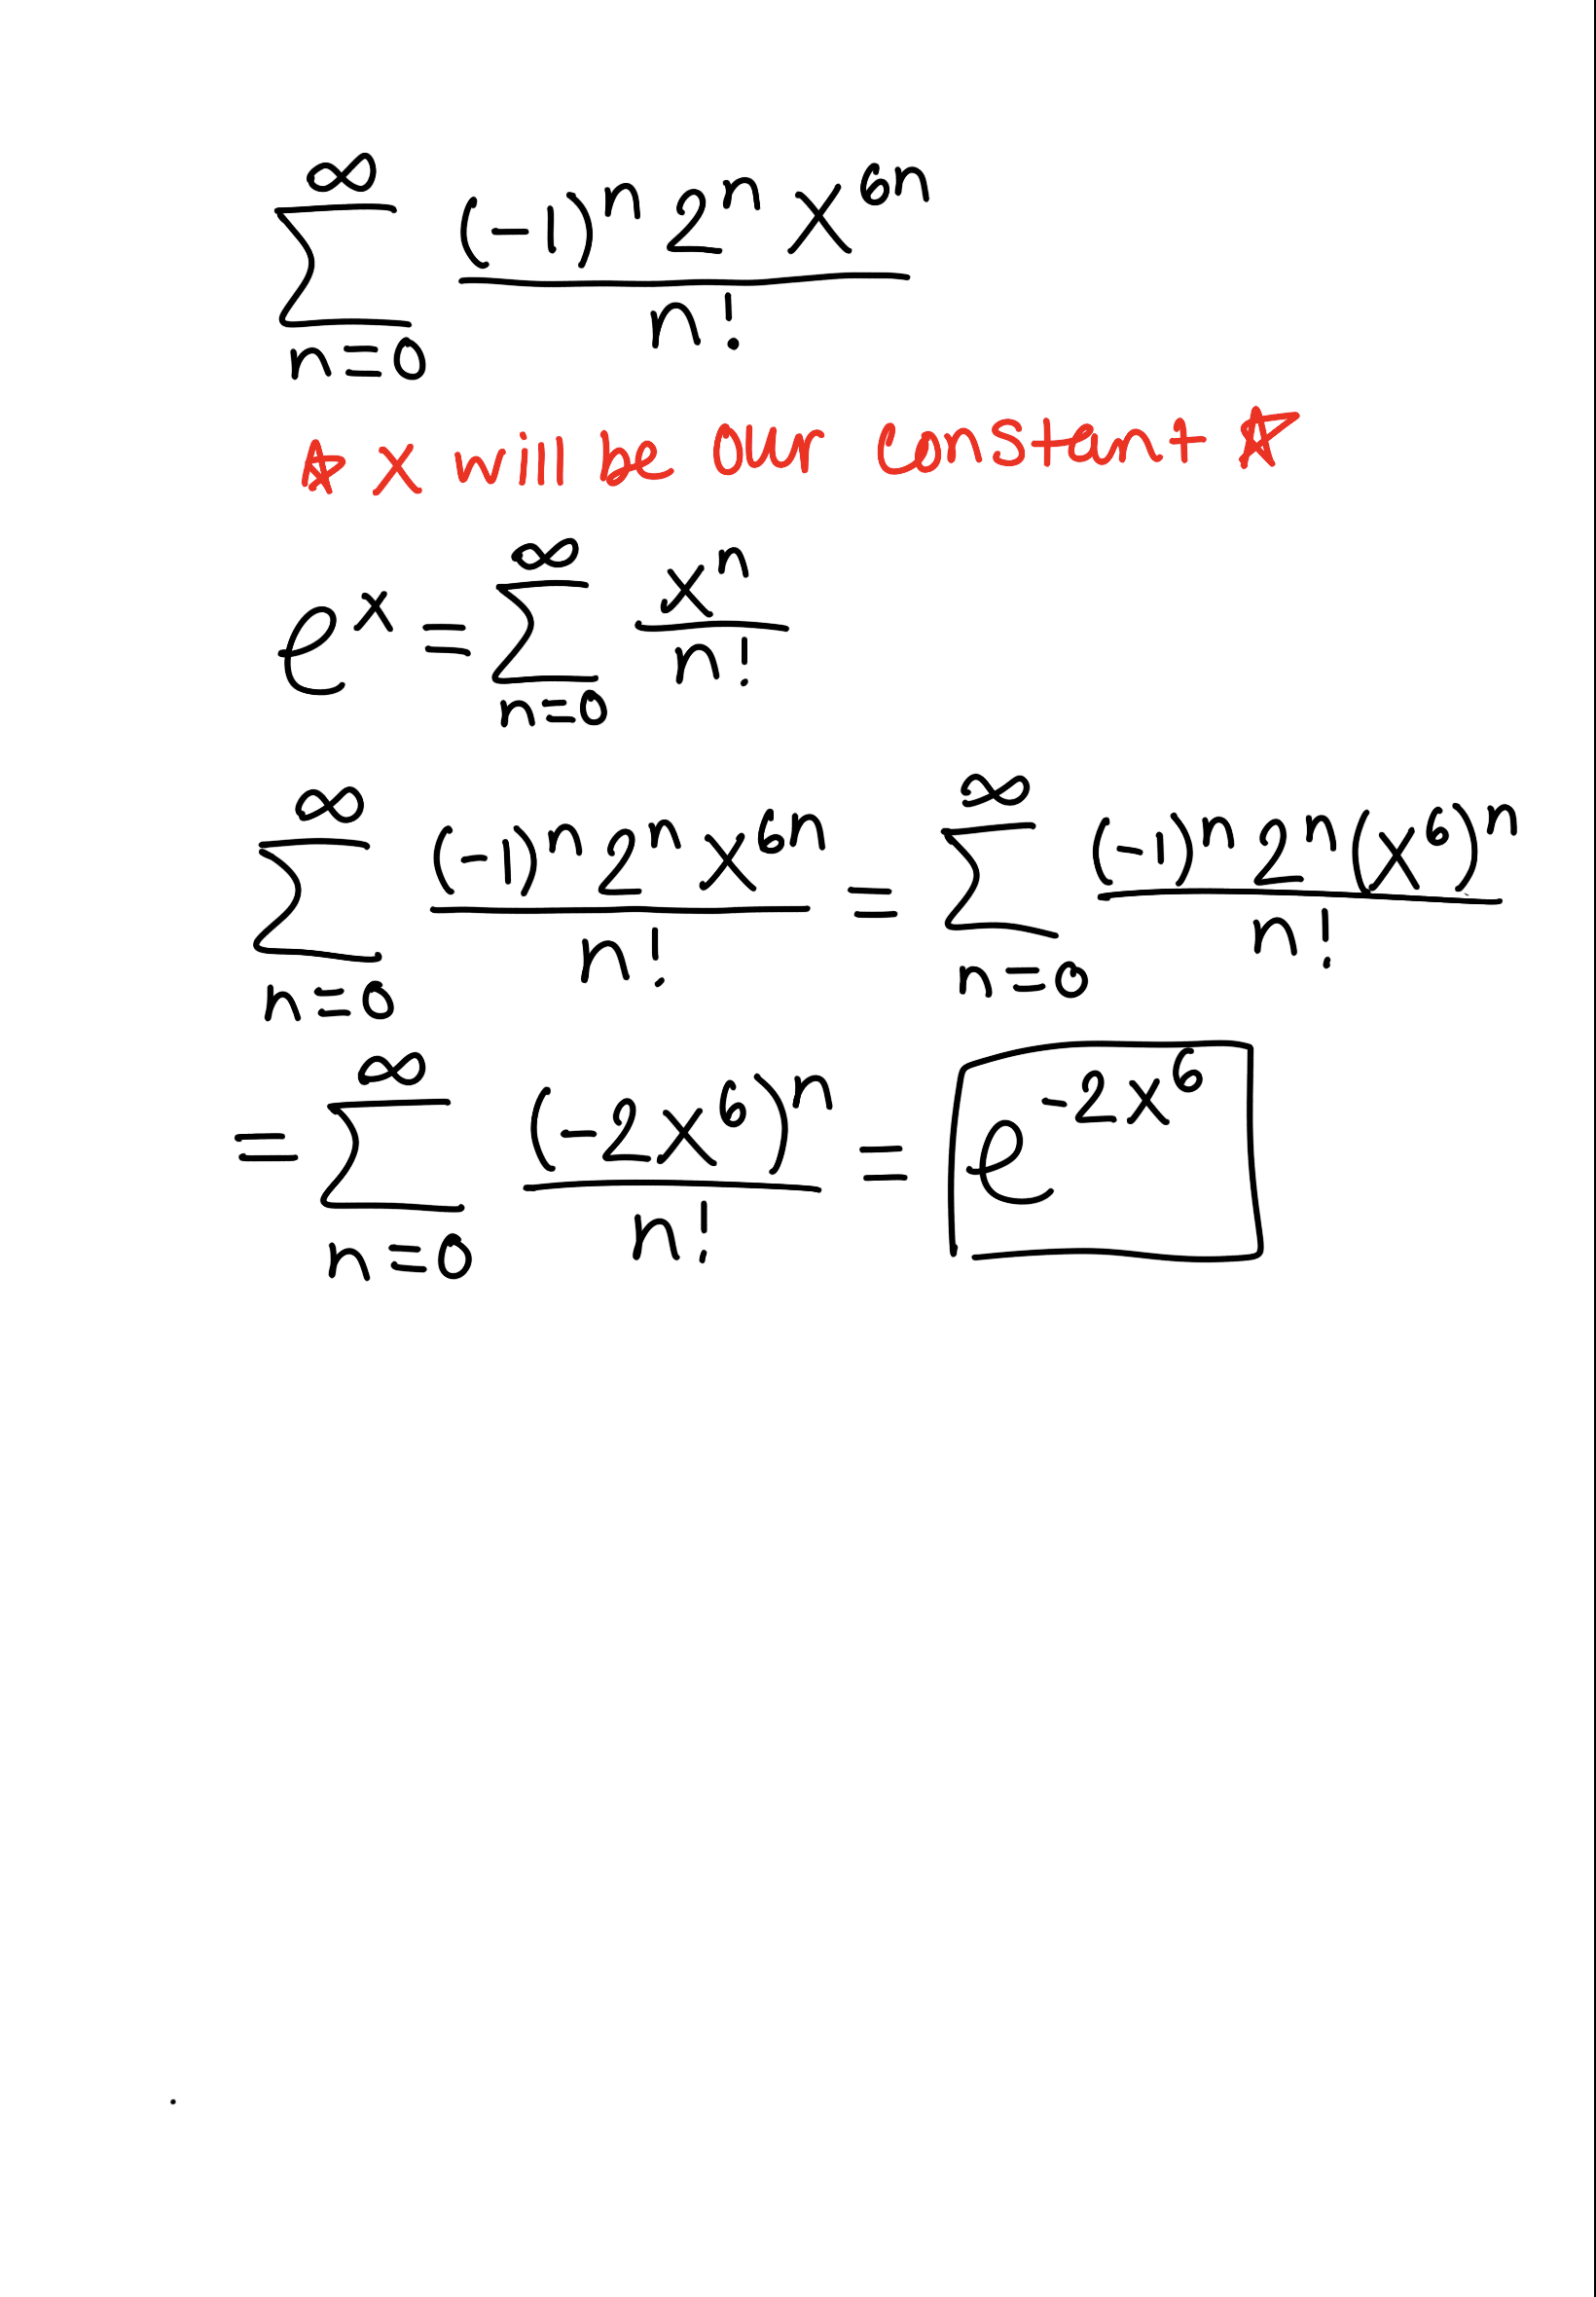 ∞
∑ (-1)ⁿ 2ⁿ x⁶ⁿ / n!
n=0
☆ x will be our constant ☆
eˣ = ∑_{n=0}^{∞} xⁿ / n!
∑_{n=0}^{∞} (-1)ⁿ 2ⁿ x⁶ⁿ / n! = ∑_{n=0}^{∞} (-1)ⁿ 2ⁿ (x⁶)ⁿ / n!
= ∑_{n=0}^{∞} (-2x⁶)ⁿ / n! = e^{-2x⁶}